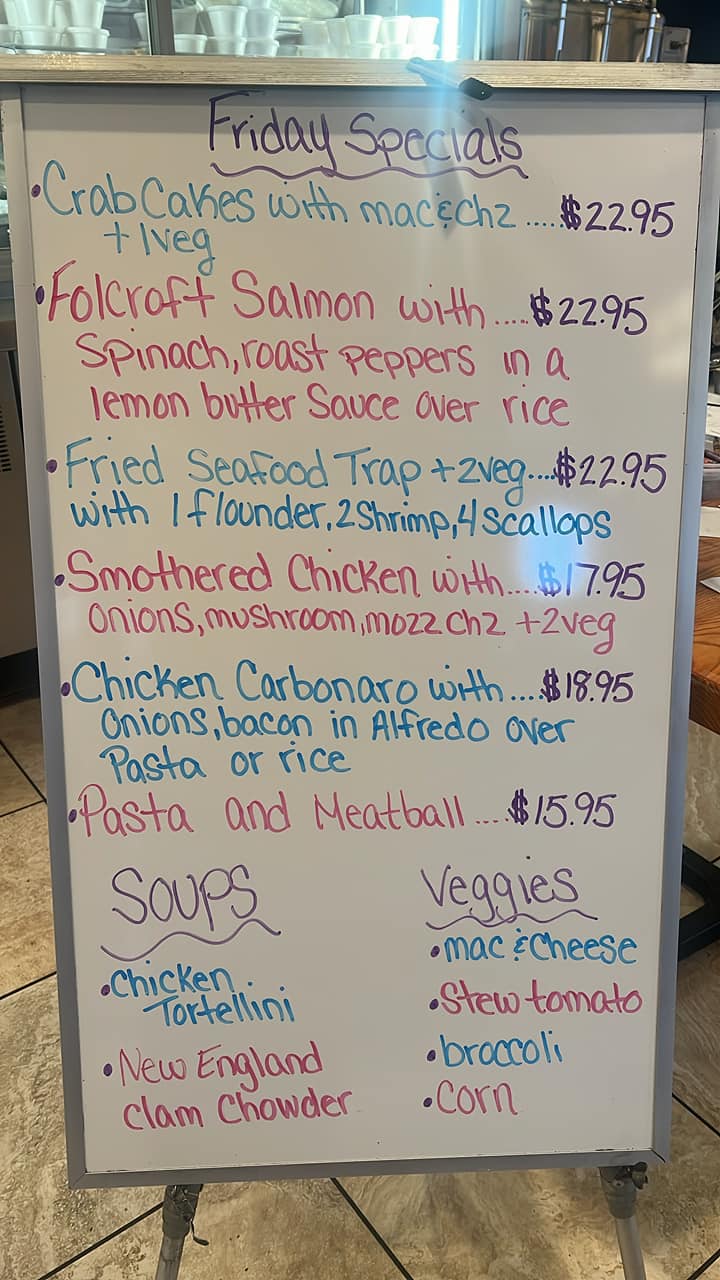 Friday Specials
• Crab Cakes with mac & chz ..... $22.95
+ 1 veg
• Folcroft Salmon with .... $22.95
Spinach, roast peppers in a
lemon butter Sauce over rice
• Fried Seafood Trap + 2 veg ... $22.95
with 1 flounder, 2 Shrimp, 4 Scallops
• Smothered Chicken with .... $17.95
Onions, mushroom, mozz chz + 2 veg
• Chicken Carbonaro with .... $18.95
Onions, bacon in Alfredo over
Pasta or rice
• Pasta and Meatball .... $15.95
Soups
• Chicken
Tortellini
• New England
Clam Chowder
Veggies
• mac & Cheese
• Stew tomato
• broccoli
• Corn